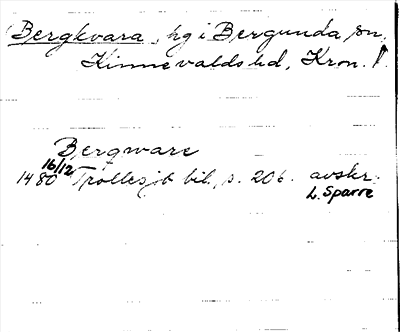 Bergkvara, hg i Bergunda sn,
Kinnevalds hd, Kron. l.
Bergware
1480 16/12 Trollesjö bil., s. 206. avskr.
L. Sparre